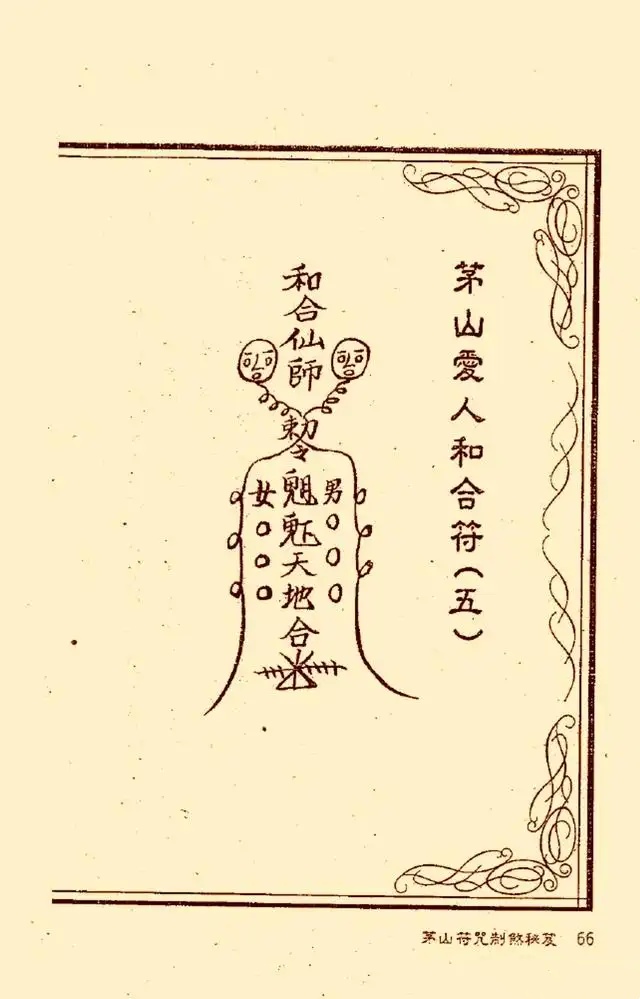 茅山愛人和合符（五）
男
和合仙師
勅令
天地合
女
茅山符咒制煞秘笈 66